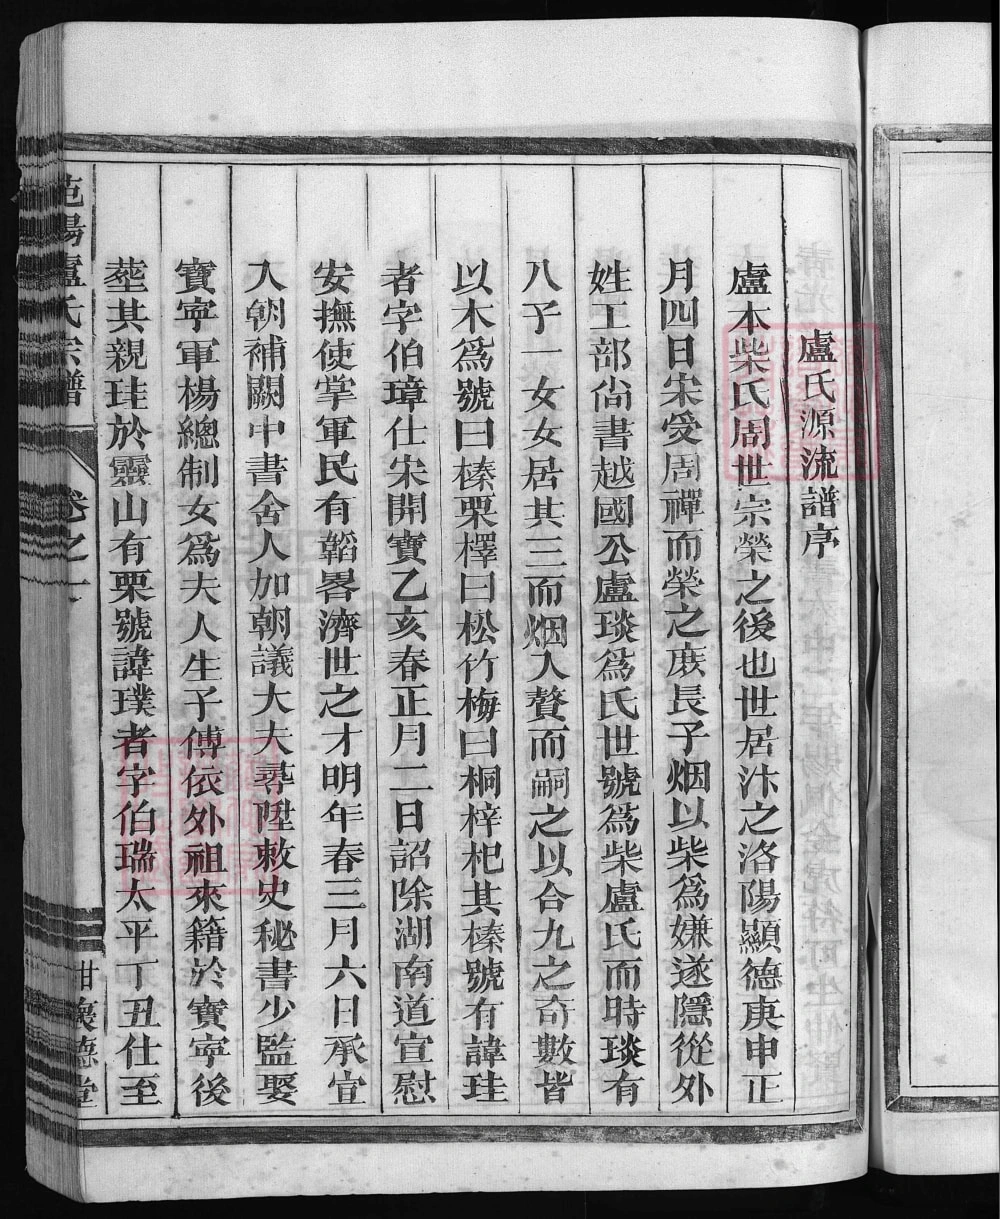 盧氏源流譜序
盧本柴氏周世宗榮之後也世居汴之洛陽顯德庚申正
月四日宋受周禪而榮之庶長子烟以柴為嫌遂隱從外
姓工部尚書越國公盧琰為氏世號為柴盧氏而時琰有
八子一女女居其三而烟入贅而嗣之以合九之奇數皆
以木為號曰榛栗檡曰松竹梅曰桐梓杞其榛號有諱珪
者字伯璋仕宋開寶乙亥春正月二日詔除湖南道宣慰
安撫使掌軍民有韜畧濟世之才明年春三月六日承宣
入朝補闕中書舍人加朝議大夫尋陞敕史秘書少監娶
寶寧軍楊總制女為夫人生子傅依外祖來籍於寶寧後
葬其親珪於靈山有栗號諱璞者字伯瑞太平丁丑仕至
范陽盧氏宗譜
卷之一
德堂